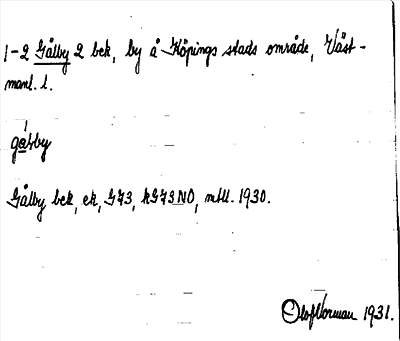 1-2 Gålby 2 bek, by å Köpings stads område, Väst-
manl. l.
Gålby bek, ek, G73, kG73NO, mtll. 1930.
Olof Norman 1931.